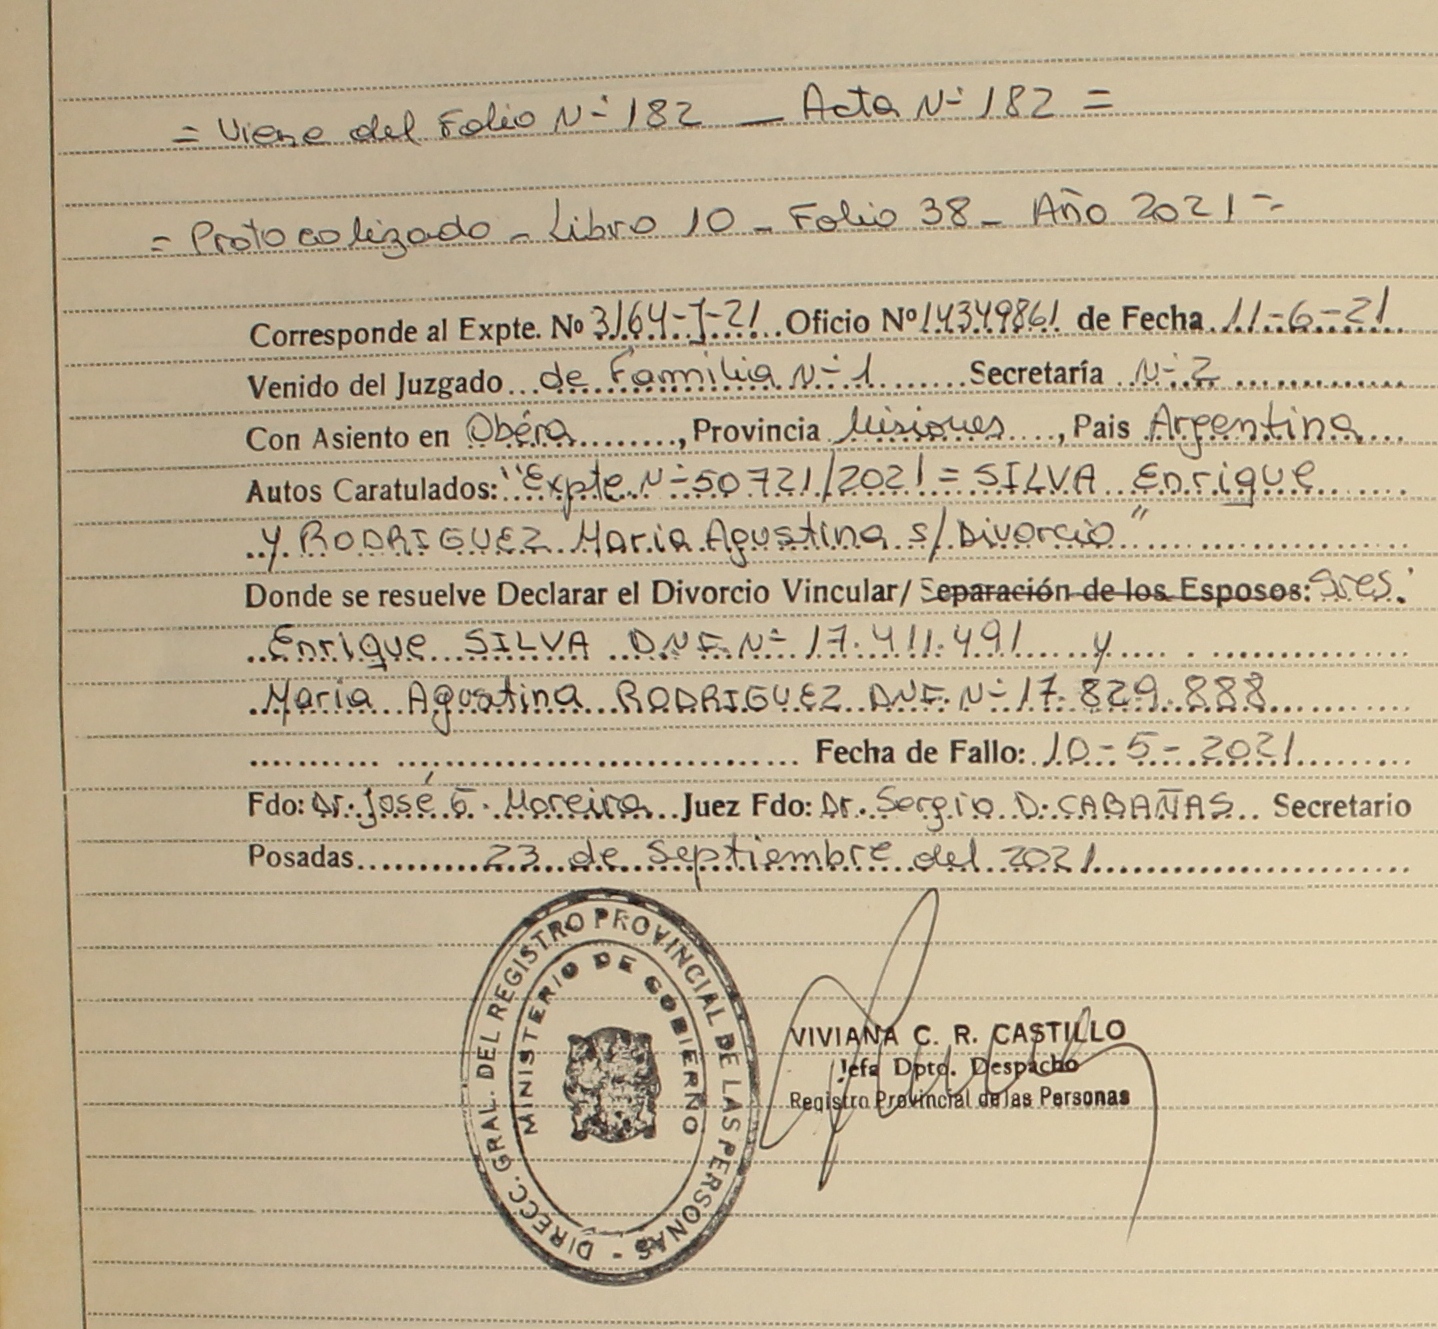 = Viene del Folio Nº 182 — Acta Nº 182 =
= Protocolizado - Libro 10 - Folio 38 - Año 2021 =
Corresponde al Expte. Nº 3164-J-21 Oficio Nº 14349861 de Fecha 11-6-21
Venido del Juzgado de Familia Nº 1 Secretaría Nº 2
Con Asiento en Oberá, Provincia Misiones, Pais Argentina
Autos Caratulados: "Expte Nº 50721/2021 = SILVA Enrique
y RODRIGUEZ Maria Agustina s/ Divorcio"
Donde se resuelve Declarar el Divorcio Vincular/ Separación de los Esposos: Sres:
Enrique SILVA DNI. Nº 17.411.491 y
María Agustina RODRIGUEZ DNI. Nº 17.829.888
Fecha de Fallo: 10-5-2021
Fdo: Dr. José G. Moreira Juez Fdo: Dr. Sergio D. CABAÑAS Secretario
Posadas 23 de Septiembre del 2021
DIRECC. GRAL. DEL REGISTRO PROVINCIAL DE LAS PERSONAS -
MINISTERIO DE GOBIERNO
VIVIANA C. R. CASTILLO
Jefa Dpto. Despacho
Registro Provincial de las Personas